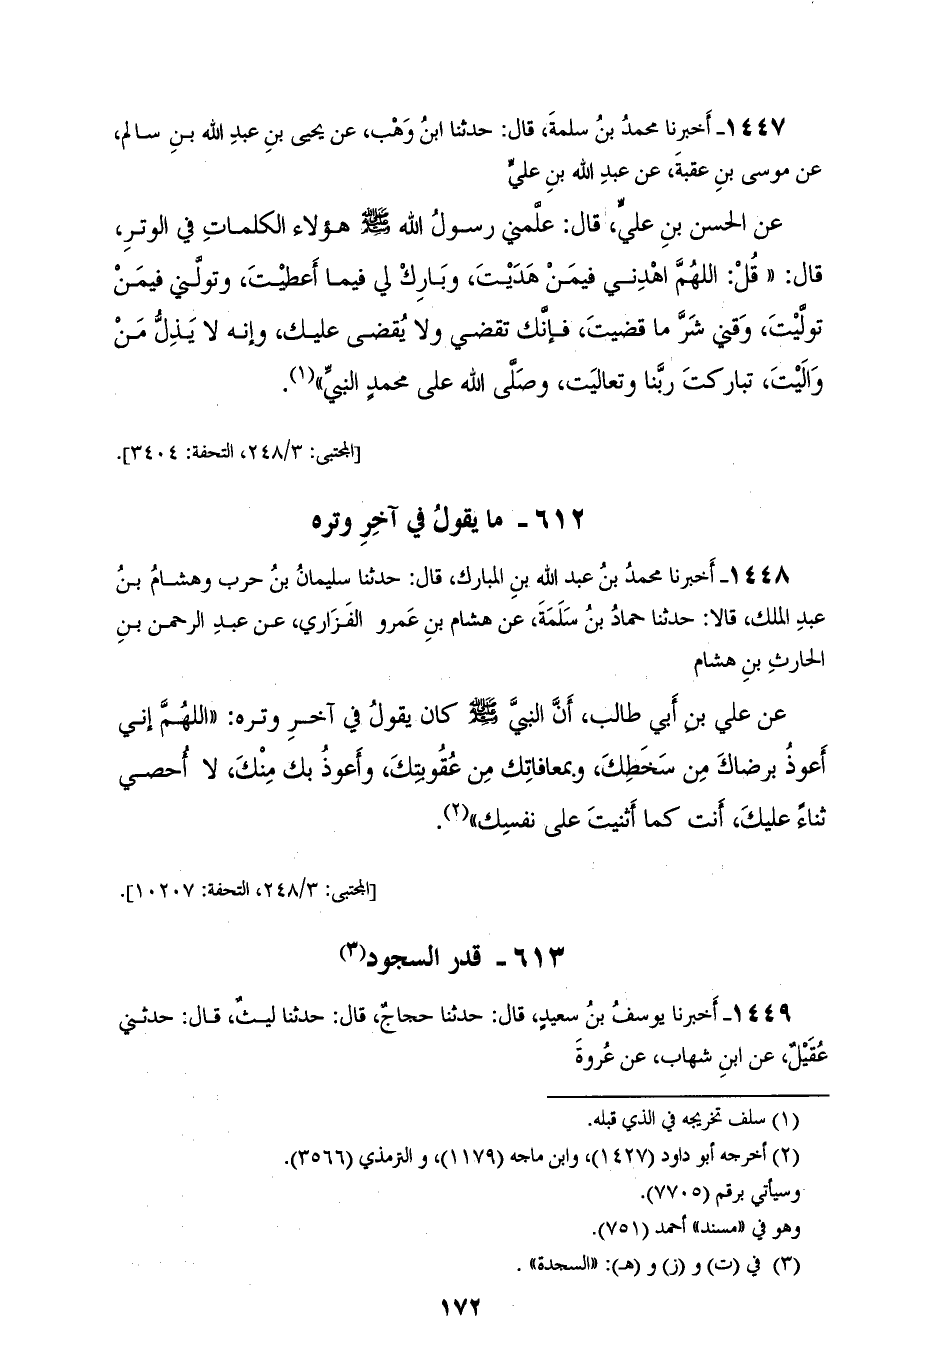 ١٤٤٧ـ أَخبرنا محمدُ بنُ سلمةَ، قال: حدثنا ابنُ وَهْب، عن يحيى بنِ عبدِ الله بنِ سالم،
عن موسى بنِ عقبةَ، عن عبدِ الله بنِ عليٍّ
عن الحسن بنِ عليٍّ، قال: علَّمني رسولُ الله ﷺ هؤلاء الكلماتِ في الوترِ،
قال: «قُلْ: اللهُمَّ اهْدِني فيمَنْ هَدَيْتَ، وبَارِكْ لي فيما أَعطيْتَ، وتولَّني فيمَنْ
تولَّيْتَ، وَقني شَرَّ ما قضيتَ، فإنَّك تقضي ولا يُقضى عليك، وإنه لا يَذِلُّ مَنْ
وَالَيْتَ، تباركتَ ربَّنا وتعاليَت، وصَلَّى الله على محمدٍ النبيِّ»(١).
[المجتبى: ٢٤٨/٣، التحفة: ٣٤٠٤].
٦١٢ - ما يقولُ في آخِرِ وتره
١٤٤٨ـ أَخبرنا محمدُ بنُ عبد الله بنِ المبارك، قال: حدثنا سليمانُ بنُ حرب وهشامُ بنُ
عبدِ الملك، قالا: حدثنا حمادُ بنُ سَلَمَةَ، عن هشام بنِ عَمرو الفَزاري، عن عبدِ الرحمن بنِ
الحارثِ بنِ هشام
عن علي بنِ أَبي طالب، أَنَّ النبيَّ ﷺ كان يقولُ في آخرِ وتره: «اللهُمَّ إني
أَعوذُ برضاكَ مِن سَخَطِكَ، وبمعافاتِك مِن عُقُوبتِكَ، وأَعوذُ بك مِنْكَ، لا أُحصي
ثناءً عليكَ، أَنت كما أَثنيتَ على نفسِك»(٢).
[المجتبى: ٢٤٨/٣، التحفة: ١٠٢٠٧].
٦١٣ - قدر السجود(٣)
١٤٤٩ـ أَخبرنا يوسفُ بنُ سعيدٍ، قال: حدثنا حجاجٌ، قال: حدثنا ليثٌ، قال: حدثني
عُقَيْلٌ، عن ابنِ شهاب، عن عُروةَ
(١) سلف تخريجه في الذي قبله.
(٢) أخرجه أبو داود (١٤٢٧)، وابن ماجه (١١٧٩)، و الترمذي (٣٥٦٦).
وسيأتي برقم (٧٧٠٥).
وهو في «مسند» أحمد (٧٥١).
(٣) في (ت) و (ز) و (هـ): «السجدة» .
١٧٢